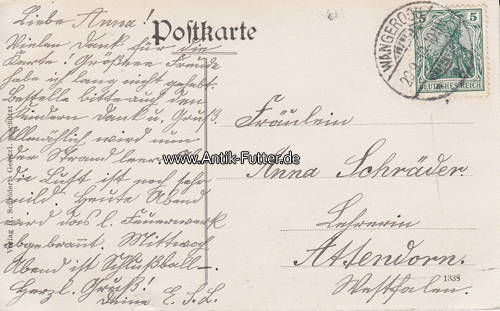 Liebe Anna!
Vielen Dank für die
Karte! Großen Freude
habe ich lang nicht gehabt.
Bestelle bitte auf den
Kindern Dank u. Gruß.
Allmählich wird nun
der Strand leer.
die Luft ist noch sehr
mild. Heute Abend
wird das l. Feuerwerk
abgebrannt. Mittwoch
Abend ist Schlußball.
Herzl. Gruß!
Deine E. S. L.
Postkarte
WANGEROOG
5 5
DEUTSCHES REICH
Fräulein
www.Antik-Futter.de
Anna Schräder
Lehrerin
Attendorn.
Westfalen.
1338
Verlag H.